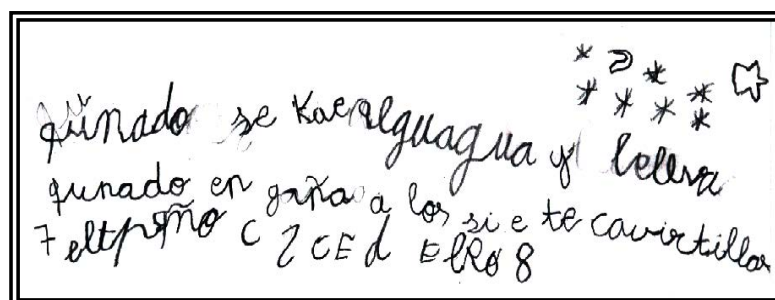 qunado se Kae alguagua y lelleva
qunado en gaña a los si e te cavirtillos
7 C 2 CEd ElRo 8